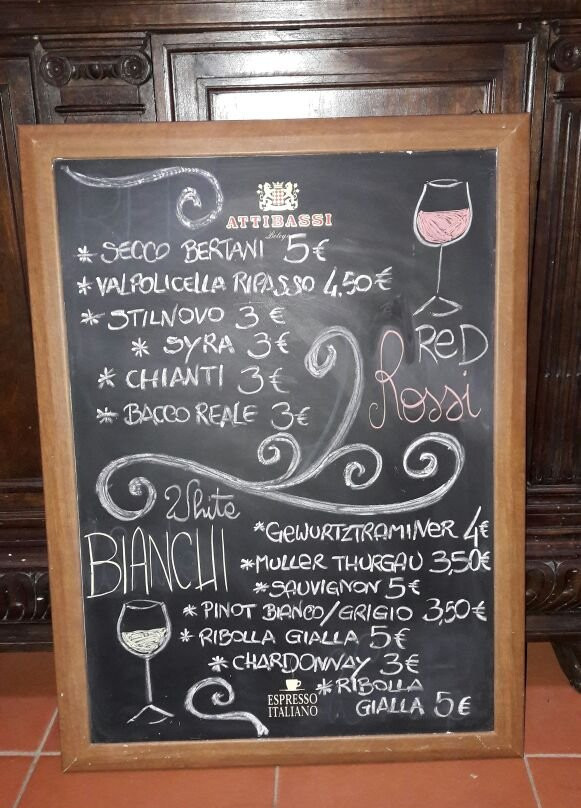 ATTIBASSI
Bologna
* SECCO BERTANI 5€
* VALPOLICELLA RIPASSO 4,50€
* STILNOVO 3€
* SYRA 3€
* CHIANTI 3€
* BACCO REALE 3€
ReD
Rossi
White
BIANCHI
* GEWURTZTRAMINER 4€
* MULLER THURGAU 3,50€
* SAUVIGNON 5€
* PINOT BIANCO/GRIGIO 3,50€
* RIBOLLA GIALLA 5€
* CHARDONNAY 3€
* RIBOLLA
GIALLA 5€
ESPRESSO
ITALIANO